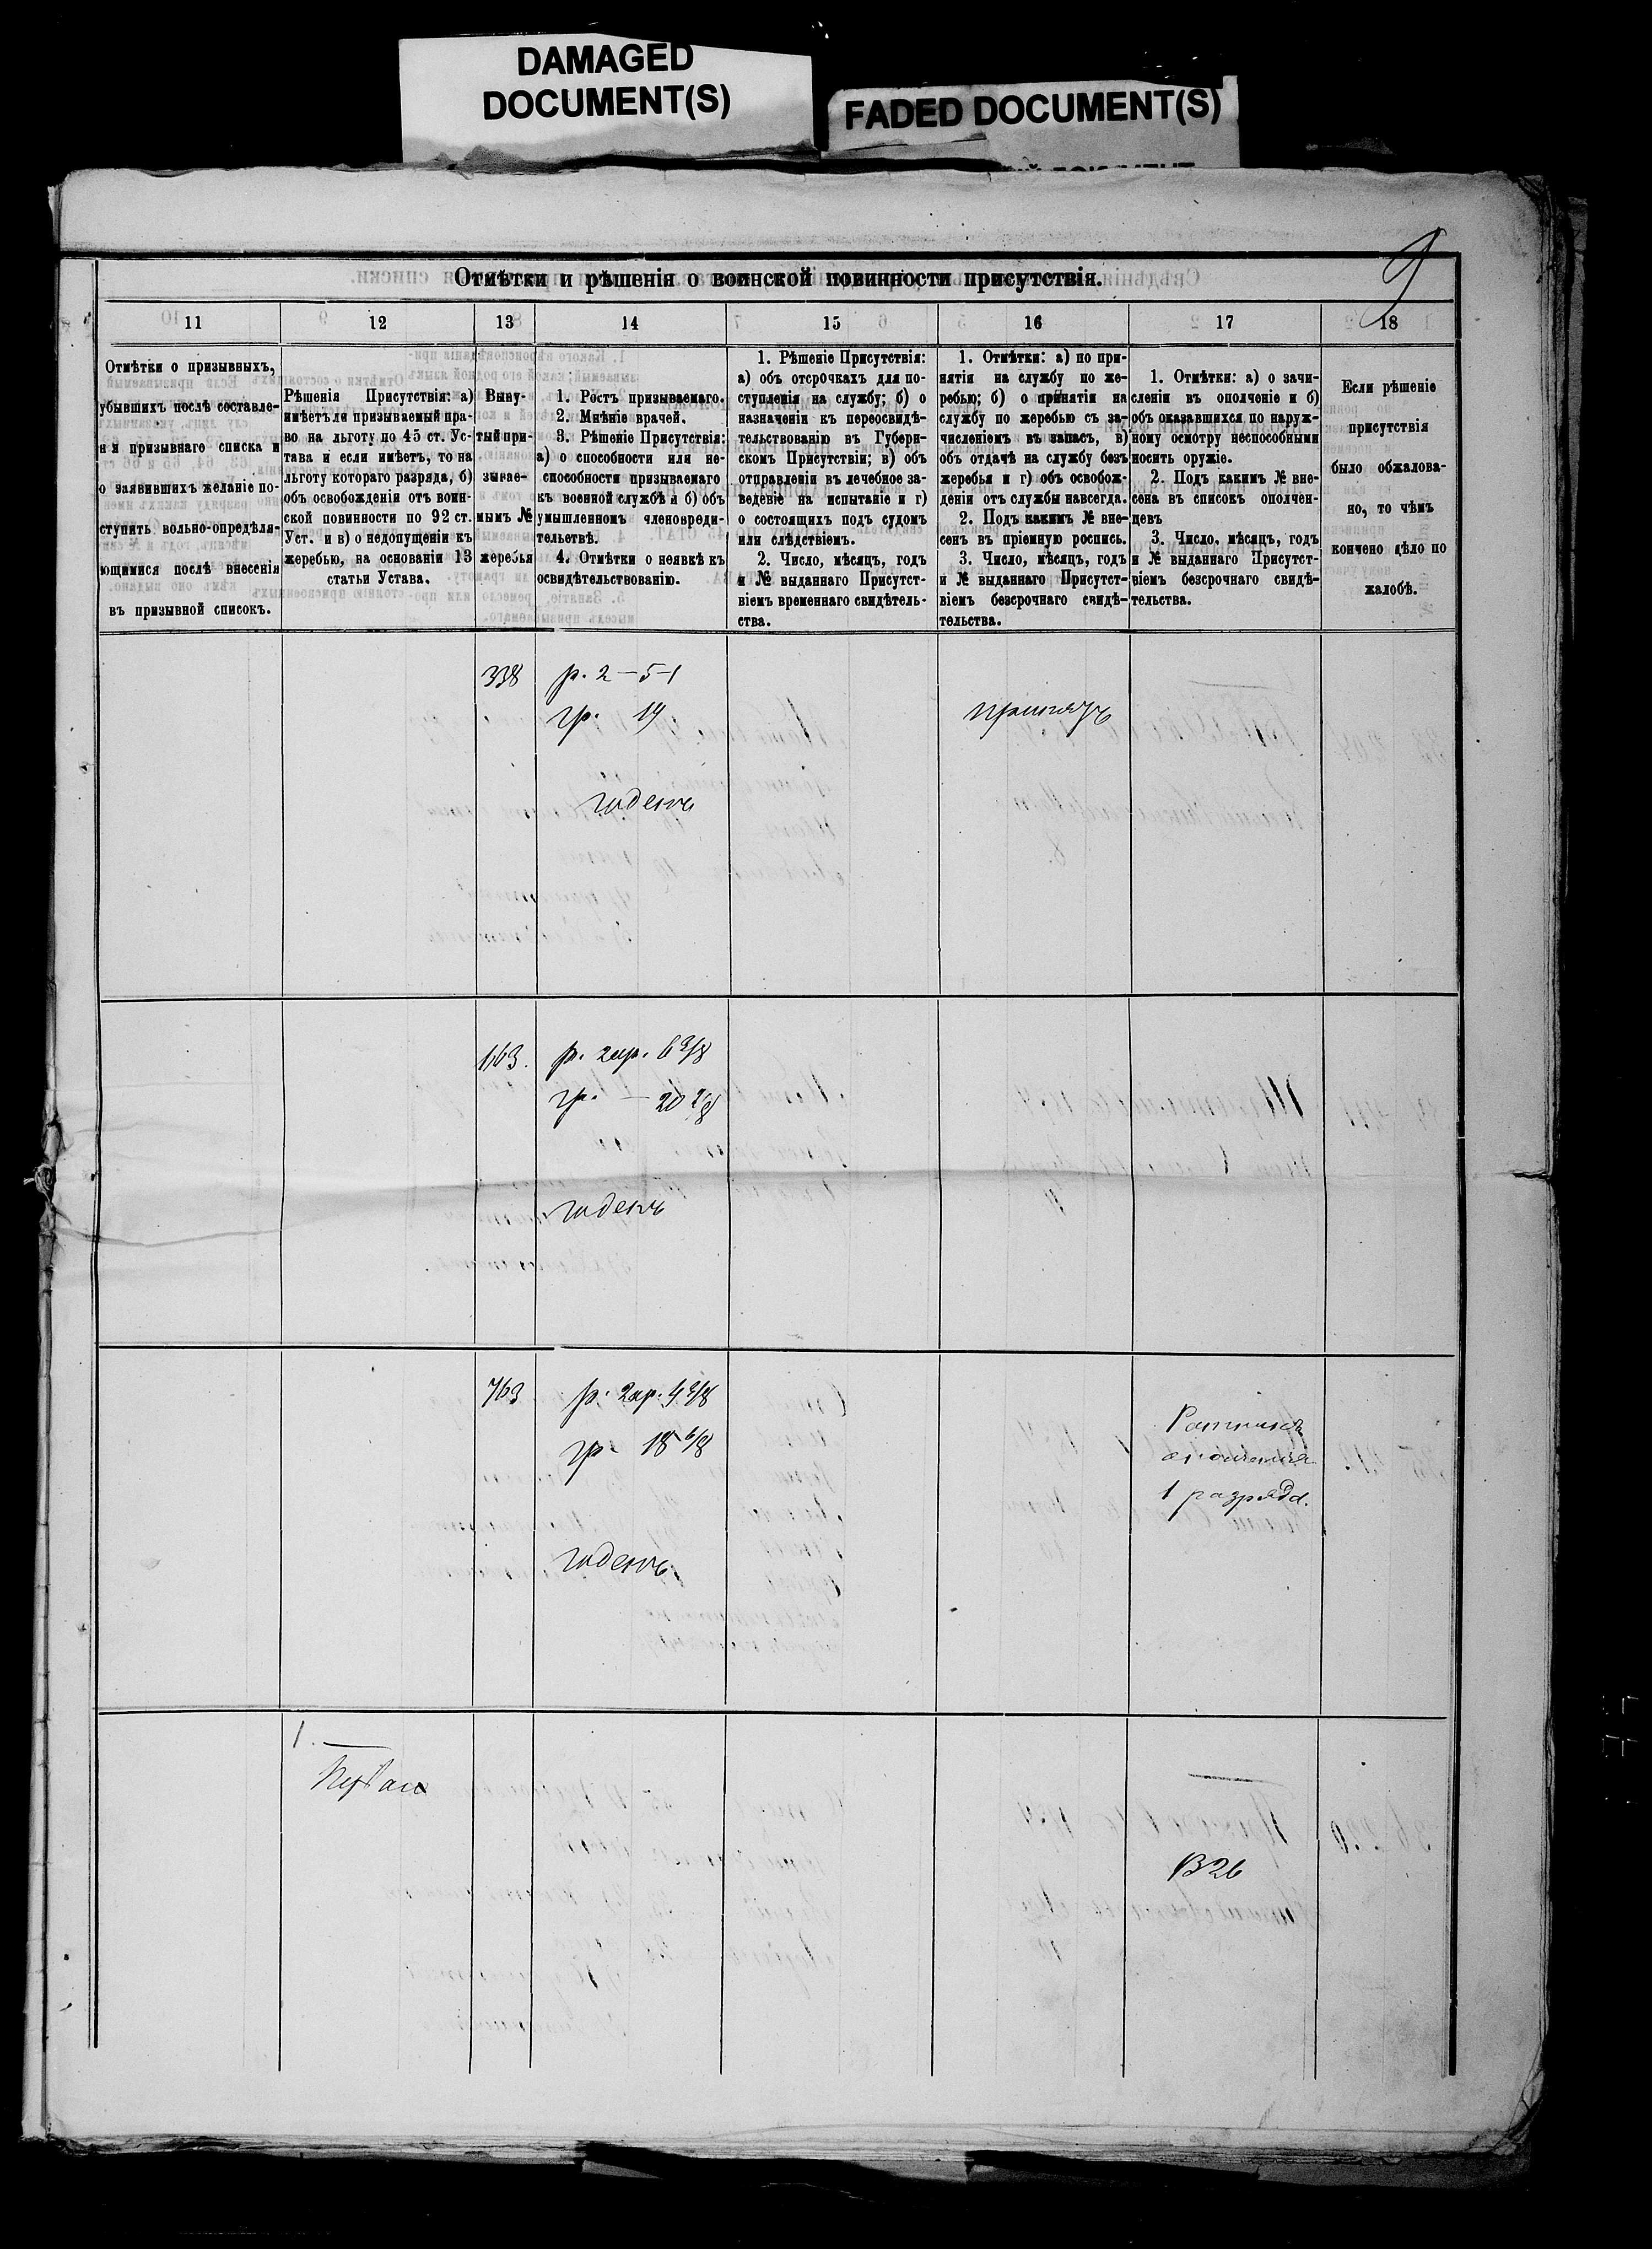 DAMAGED
DOCUMENT(S)
FADED DOCUMENT(S)
9
Отмѣтки и рѣшенія о воинской повинности присутствія.
11 12 13 14 15 16 17 18
Отмѣтки о призывныхъ,
убывшихъ послѣ составле-
нія призывнаго списка и
о заявившихъ желаніе по-
ступить вольно-опредѣля-
ющимися послѣ внесенія
въ призывной списокъ.
Рѣшенія Присутствія: а)
имѣетъ ли призываемый пра-
во на льготу по 45 ст. Ус-
тава и если имѣетъ, то на
льготу котораго разряда, б)
объ освобожденіи отъ воин-
ской повинности по 92 ст.
Уст. и в) о недопущеніи къ
жеребью, на основаніи 13
статьи Устава.
Выну-
тый при-
зывае-
мымъ №
жеребья
1. Ростъ призываемаго.
2. Мнѣніе врачей.
3. Рѣшеніе Присутствія:
а) о способности или не-
способности призываемаго
къ военной службѣ и б) объ
умышленномъ членовреди-
тельствѣ.
4. Отмѣтки о неявкѣ къ
освидѣтельствованію.
1. Рѣшеніе Присутствія:
а) объ отсрочкахъ для по-
ступленія на службу; б) о
назначеніи къ переосвидѣ-
тельствованію въ Губерн-
скомъ Присутствіи; в) объ
отправленіи въ лечебное за-
веденіе на испытаніе и г)
о состоящихъ подъ судомъ
или слѣдствіемъ.
2. Число, мѣсяцъ, годъ
и № выданнаго Присутст-
віемъ временнаго свидѣтель-
ства.
1. Отмѣтки: а) по при-
нятіи на службу по же-
ребью; б) о принятіи на
службу по жеребью съ за-
численіемъ въ запасъ, в)
объ отдачѣ на службу безъ
жеребья и г) объ освобож-
деніи отъ службы навсегда.
2. Подъ какимъ № вне-
сенъ въ пріемную роспись.
3. Число, мѣсяцъ, годъ
и № выданнаго Присутст-
віемъ безсрочнаго свидѣ-
тельства.
1. Отмѣтки: а) о зачи-
сленіи въ ополченіе и б)
объ оказавшихся по наруж-
ному осмотру неспособными
носить оружіе.
2. Подъ какимъ № вне-
сена въ списокъ ополчен-
цевъ
3. Число, мѣсяцъ, годъ
и № выданнаго Присутст-
віемъ безсрочнаго свидѣ-
тельства.
Если рѣшеніе
присутствія
было обжалова-
но, то чѣмъ
кончено дѣло по
жалобѣ.
338 р. 2 — 5 —
гр. 19
принятъ
годенъ
1163. р. 2 ар. 6 3/8
гр. — 20 2/8
годенъ
763 р. 2 ар. 4 3/8
гр. 18 6/8
годенъ
Ратникъ
ополченія
1 разряда.
1.
B 26